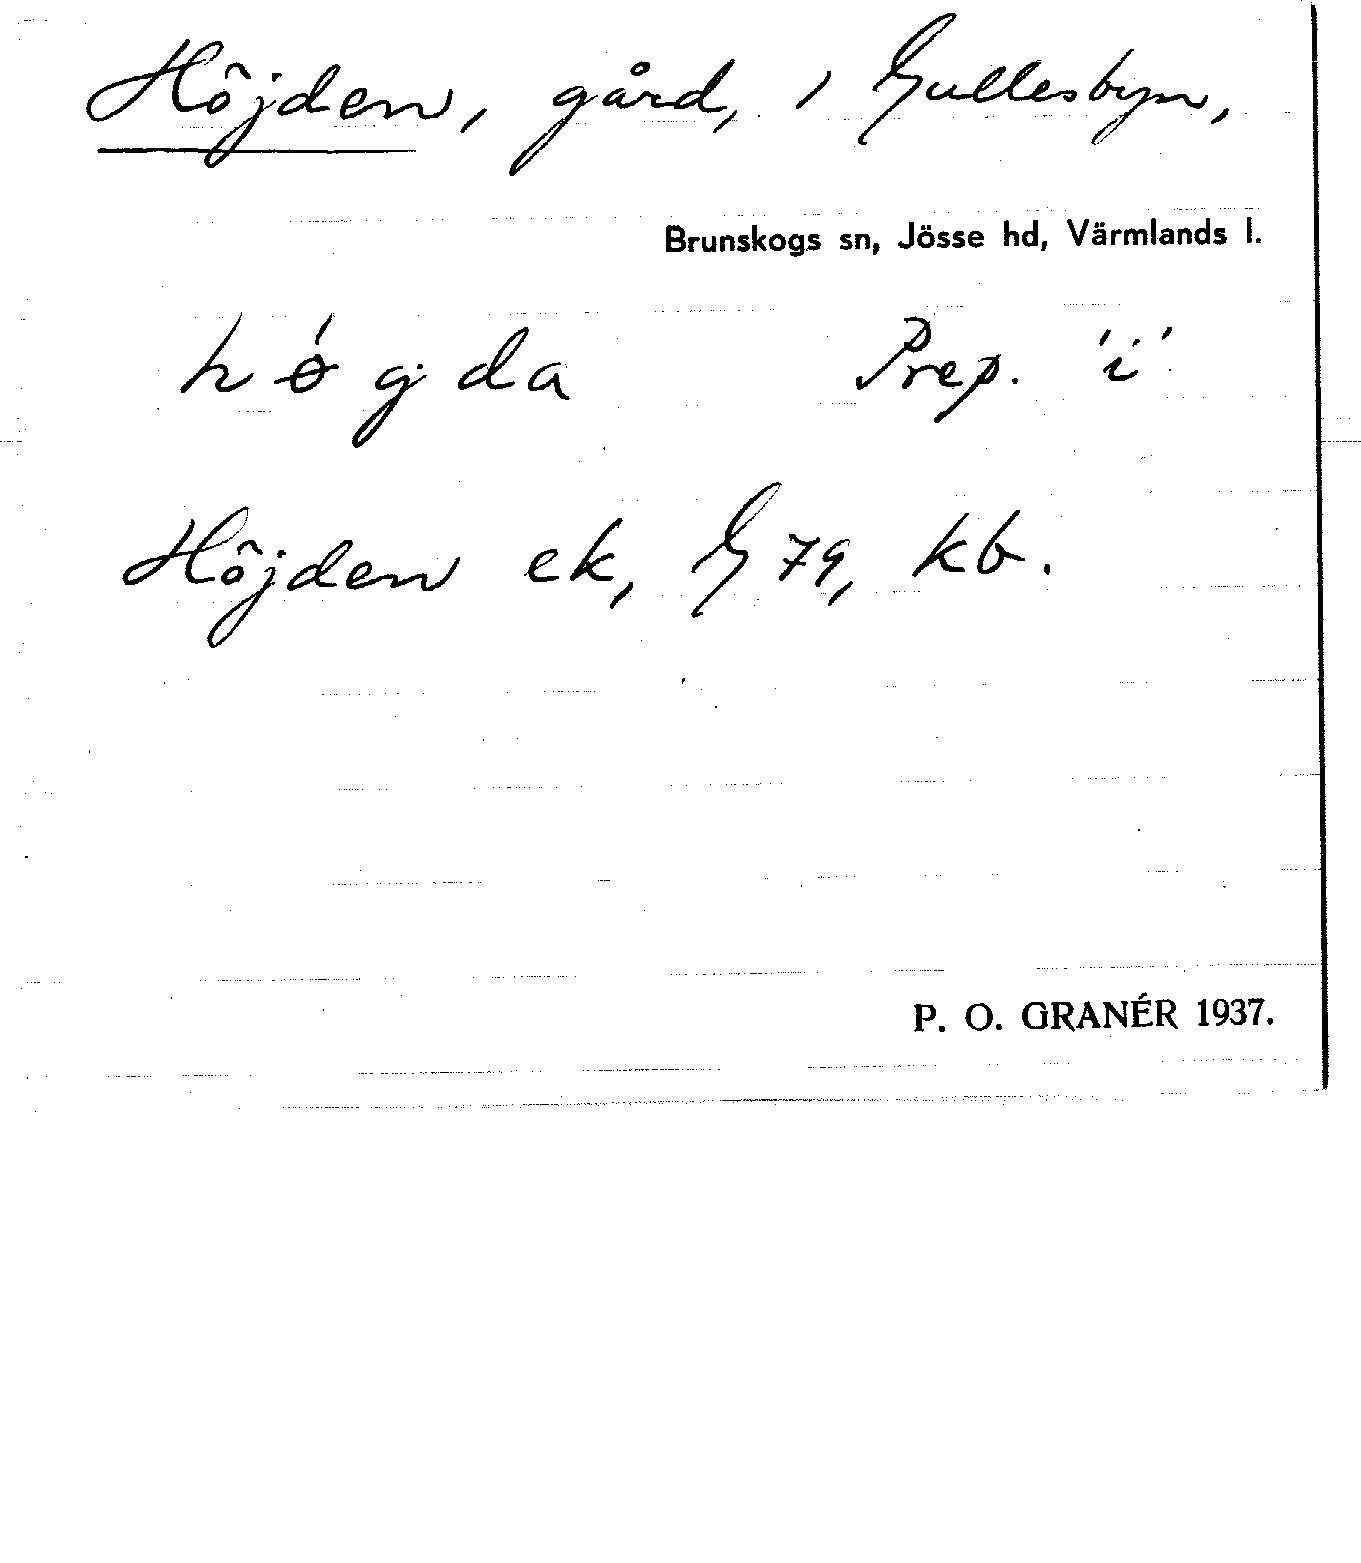 Höjden, gård, i Gullesbyn,
Brunskogs sn, Jösse hd, Värmlands l.
hǿgda Prep. 'i'
Höjden ek, G 79, kb.
P. O. GRANÉR 1937.